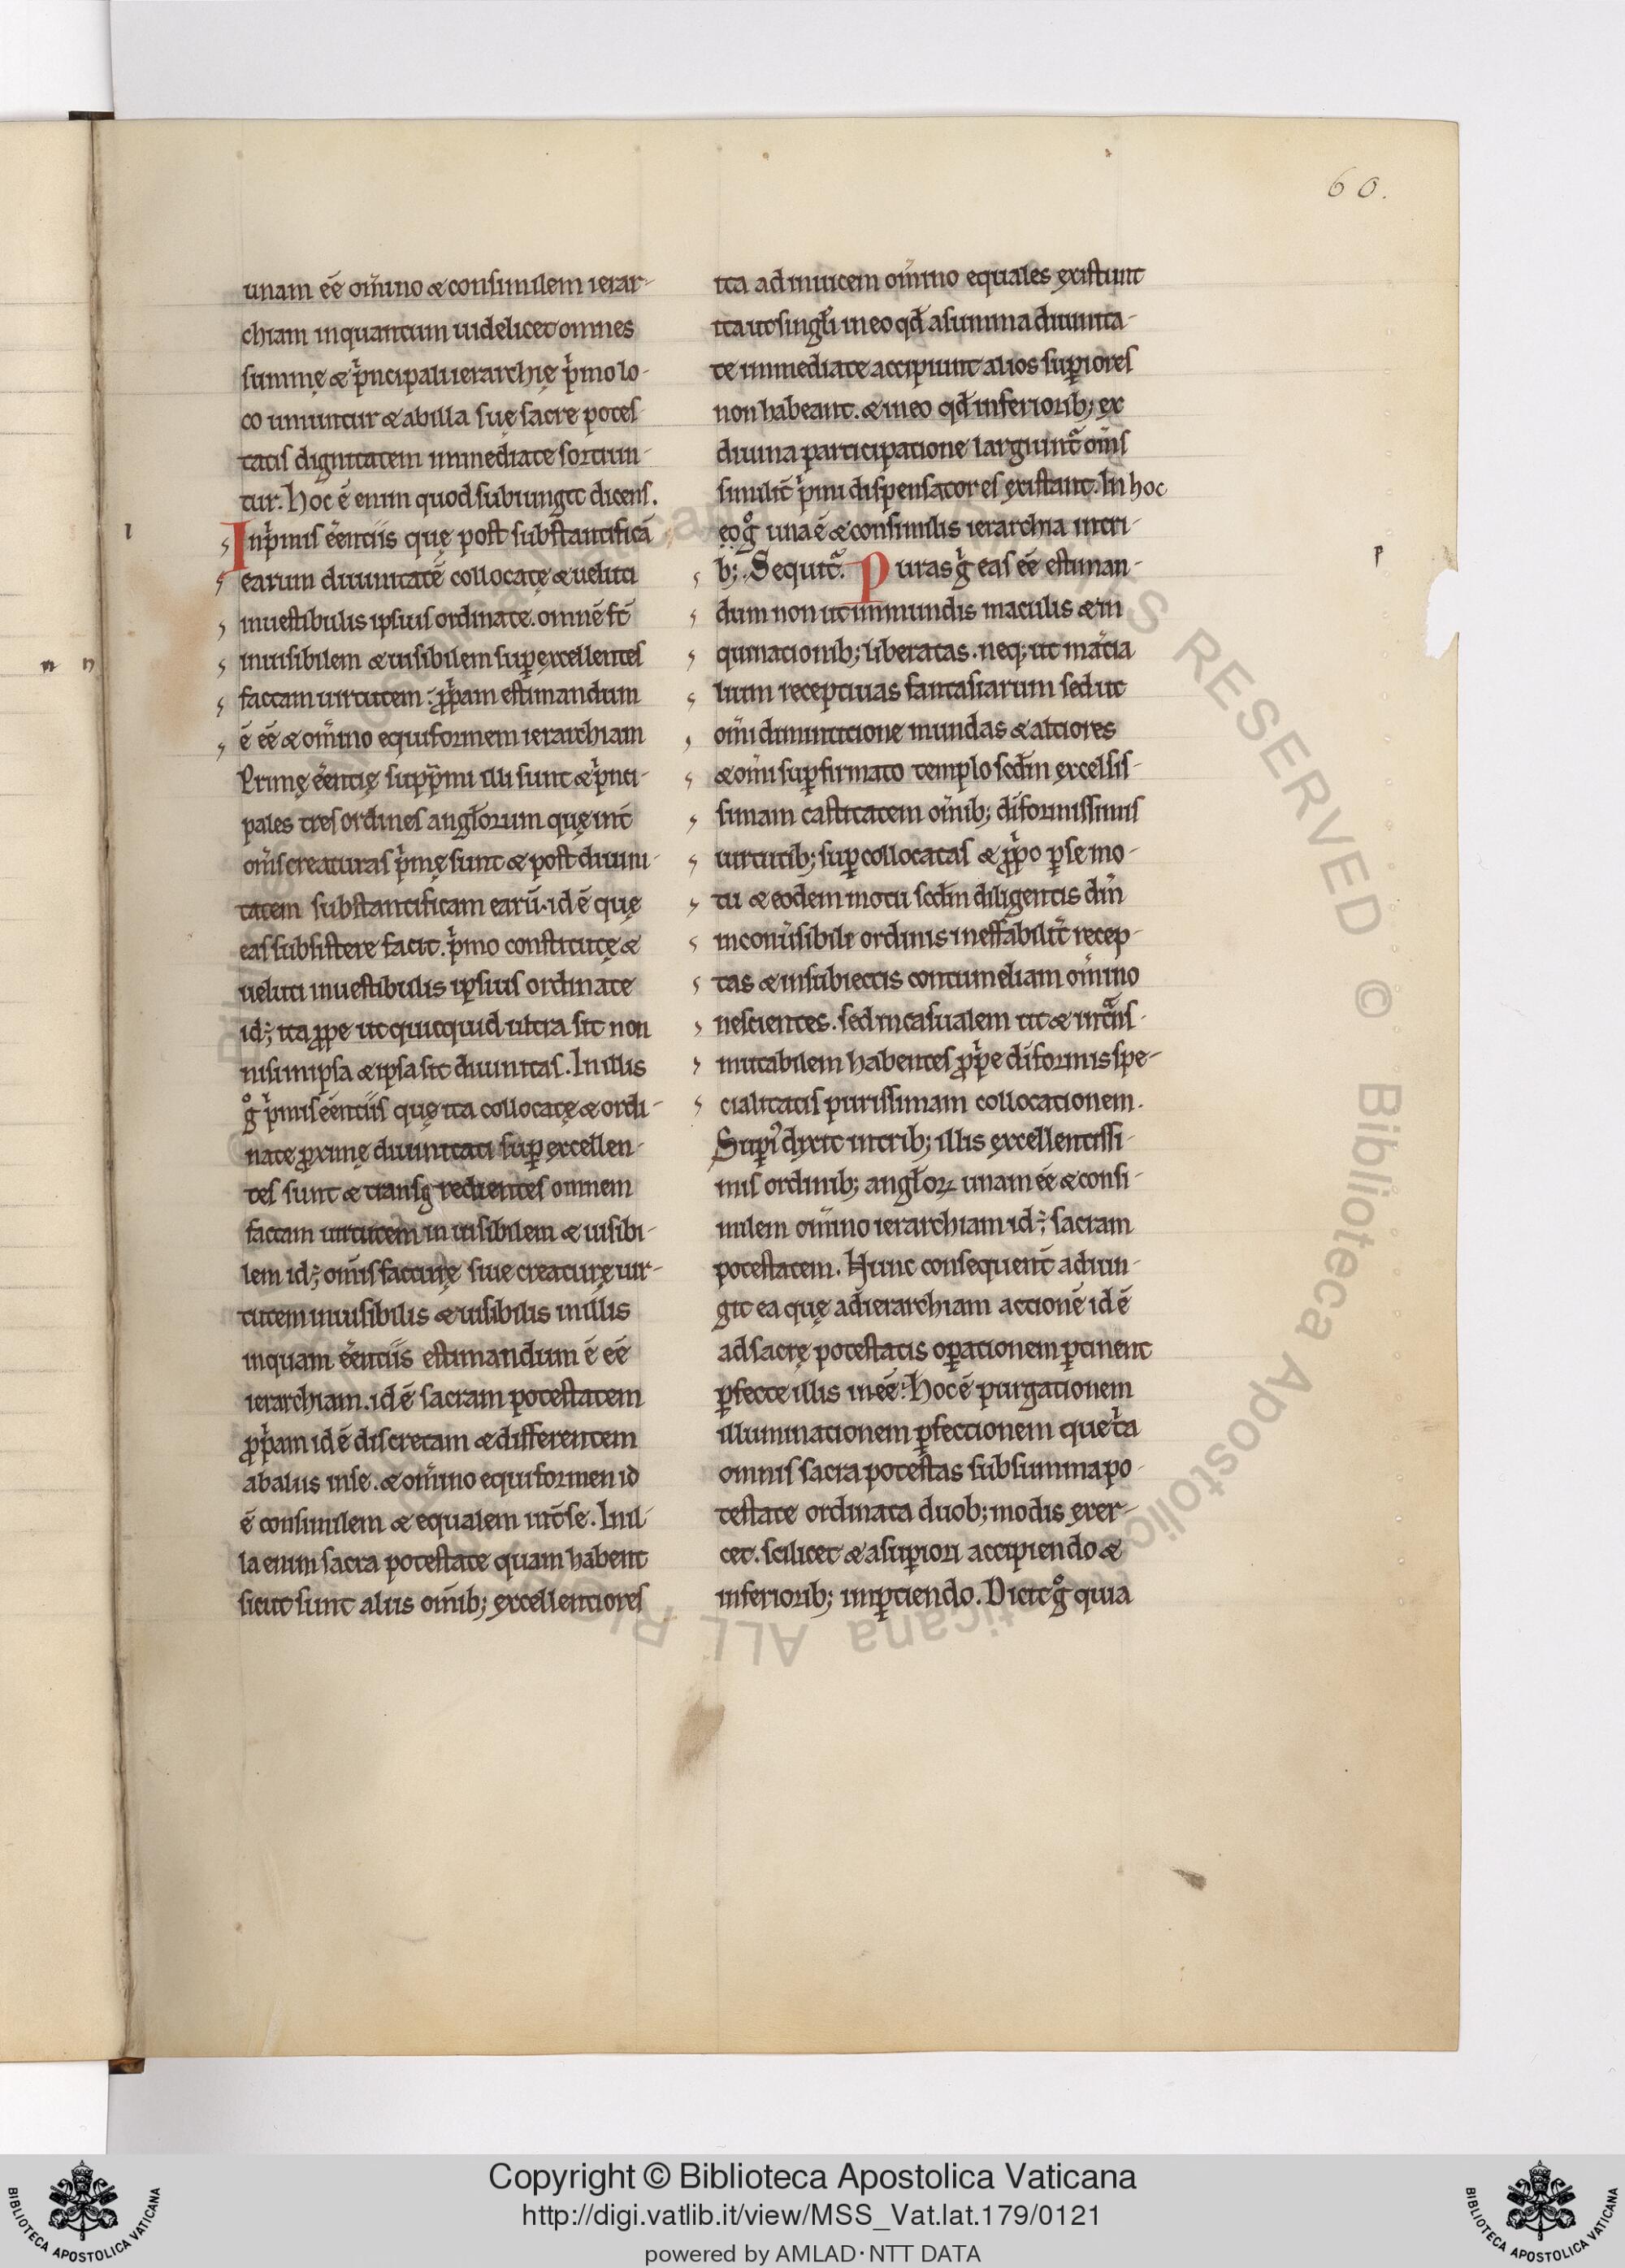 60.
unam ēē om̄ino & consimilem ierar-
chiam inquantum uidelicet omnes
summę & p̍ncipali ierarchię p̍mo lo-
co uniuntur & ab illa suę sacre potes-
tatis dignitatem immediate sortiun-
tur. hoc ē enim quod subiungit dicens.
In p̍mis ēēntiis quę post substantificā
earum diuinitatē collocatę & ueluti
in uestibulis ipsius ordinate. omnē f̄c̄
inuisibilem & uisibilem suꝑ excellentes
factam uirtutem: ꝓp̍am estimandum
ē ēē & om̄ino equiformem ierarchiam
Primę ēēntię supp̍mi illi sunt & p̍nci-
pales tres ordines angl̄orum quę int̄
om̄s creaturas p̍mę sunt & post diuini-
tatem substantificam earū. id ē quę
eas subsistere facit. p̍mo constitutę &
ueluti in uestibulis ipsius ordinate
id; ita ꝓpe ut quicquid ultra sit non
nisi in ipsa & ipsa sit diuinitas. In illis
gͦ p̍mis ēēntiis quę ita collocatę & ordi-
nate ꝓximę diuinitati suꝑ excellen-
tes sunt & transgredientes omnem
factam uirtutem inuisibilem & uisibi-
lem id; om̄is facturę siue creaturę uir-
tutem inuisibilis & uisibilis in illis
inquam ēēntiis estimandum ē ēē
ierarchiam. id ē sacram potestatem
ꝓp̍am id ē discretam & differentem
ab aliis in se. & om̄ino equiformen id
ē consimilem & equalem int̄ se. In il-
la enim sacra potestate quam habent
sicut sunt aliis om̄ib; excellentiores
ita ad inuicem om̄ino equales existunt
ita ut singl̄i in eo qd̄ a summa diuinita-
te immediate accipiunt alios suꝑiores
non habeant. & in eo qd̄ inferiorib; ex
diuina participatione largiunt᷑ om̄s
similit̄ p̍mi dispensatores existant. In hoc
eo gͦ una ē & consimilis ierarchia in tri-
b;. Sequit᷑. Puras g̍ eas ēē estiman-
dum non ut inmundis maculis & in
quinationib; liberatas. neq; ut mat̄ia
lium receptiuas fantasiarum sed ut
om̄i diminutione mundas & altiores
& om̄i suꝑfirmato templo scd̄m excellis-
simam castitatem om̄ib; diformissimis
uirtutib; suꝑcollocatas & ꝓp̍o ꝑ se mo-
tu & eodem motu scd̄m diligentis dm̄
inconūsibile ordinis ineffabilit̄ recep-
tas & in subiectis contumeliam om̄ino
nescientes. sed in casualem ut & int̄ns-
mutabilem habentes ꝓp̍e diformis spe-
cialitatis purissimam collocationem.
Supi᷒ dixit in trib; illis excellentissi-
mis ordinib; angl̄oꝝ unam ēē & consi-
milem om̄ino ierarchiam id; sacram
potestatem. Hunc consequent̄ adiun-
git ea quę ad ierarchiam actionē id ē
ad sacrę potestatis oꝑationem ꝑtinent
ꝑfecte illis in ēē. Hoc ē purgationem
illuminationem ꝑfectionem que t̍a
omnis sacra potestas sub summa po-
testate ordinata duob; modis exer-
cet. scilicet & a suꝑiori accipiendo &
inferiorib; imꝑtiendo. Dicit gͦ quia
Copyright © Biblioteca Apostolica Vaticana
http://digi.vatlib.it/view/MSS_Vat.lat.179/0121
powered by AMLAD·NTT DATA